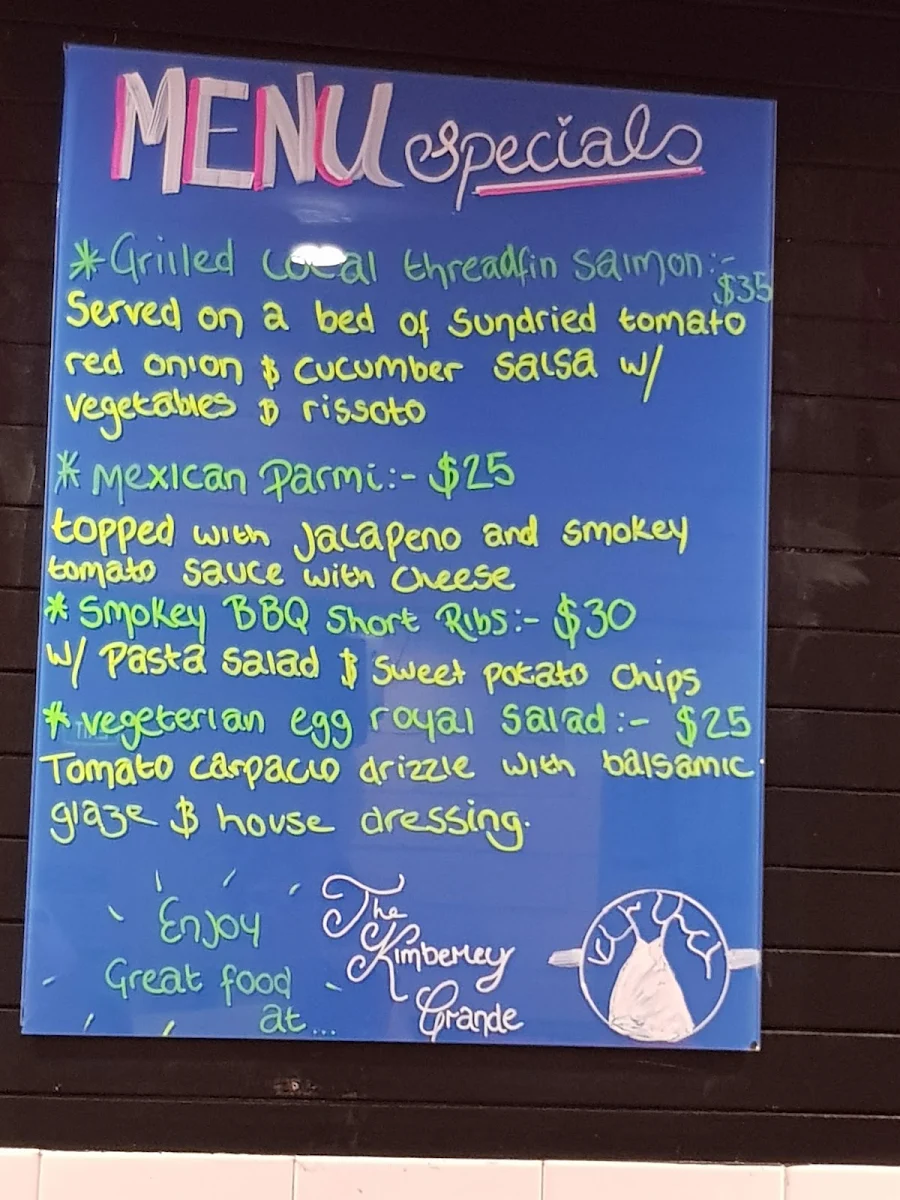 MENU Specials
*Grilled Local threadfin Salmon:- $35
Served on a bed of Sundried tomato
red onion & cucumber salsa w/
vegetables & rissoto
* Mexican Parmi:- $25
topped with Jalapeno and smokey
tomato sauce with Cheese
* Smokey BBQ Short Ribs:- $30
w/ Pasta salad & Sweet potato Chips
* vegeterian egg royal Salad:- $25
Tomato carpacio drizzle with balsamic
glaze & house dressing.
Enjoy
Great food
at...
The
Kimberley
Grande